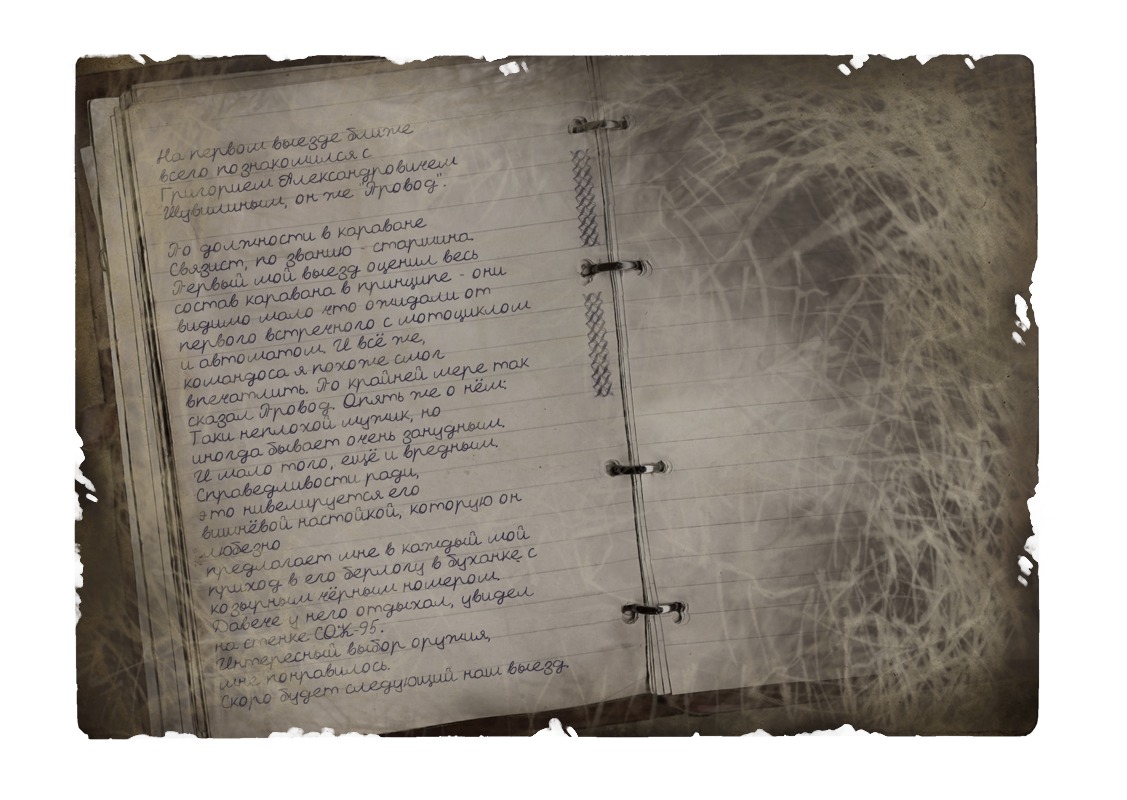 На первом выезде ближе
всего познакомился с
Григорием Александровичем
Шувилиным, он же "Провод".
По должности в караване
Связист, по званию - старшина.
Первый мой выезд оценил весь
состав каравана в принципе - они
видимо мало что ожидали от
первого встречного с мотоциклом
и автоматом. И всё же,
командоса я похоже смог
впечатлить. По крайней мере так
сказал Провод. Опять же о нём:
Таки неплохой мужик, но
иногда бывает очень занудным.
И мало того, ещё и вредным.
Справедливости ради,
это нивелируется его
вишнёвой настойкой, которую он
любезно
предлагает мне в каждый мой
приход в его берлогу в буханке с
козырным чёрным номером.
Давече у него отдыхал, увидел
на стенке СОК-95.
Интересный выбор оружия,
мне понравилось.
Скоро будет следующий наш выезд.